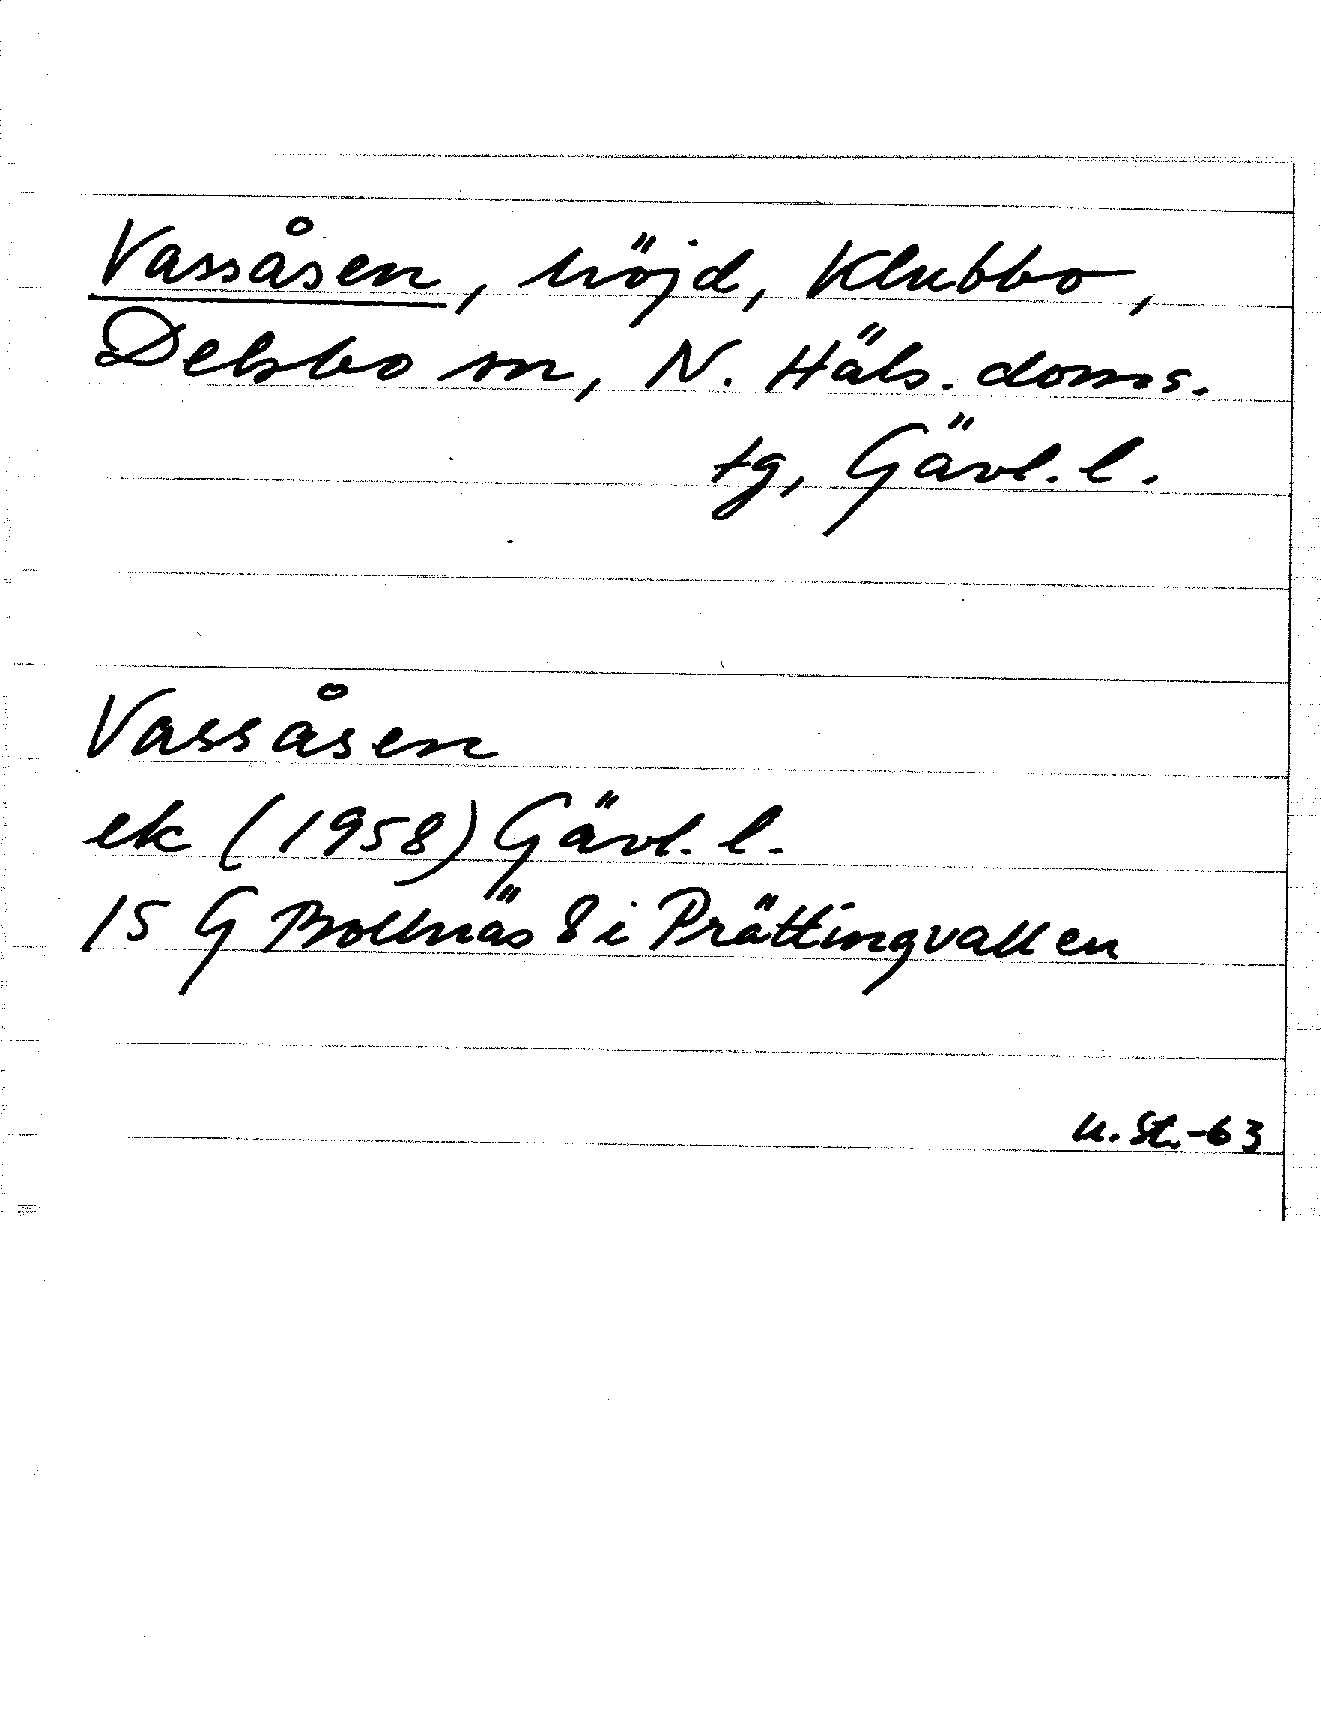 Vassåsen, höjd, Klubbo,
Delsbo sn, N. Häls. doms.
tg, Gävl. l.
Vassåsen
ek (1958) Gävl. l.
15 G Bollnäs 8 i Prättingvallen
U. St.-63